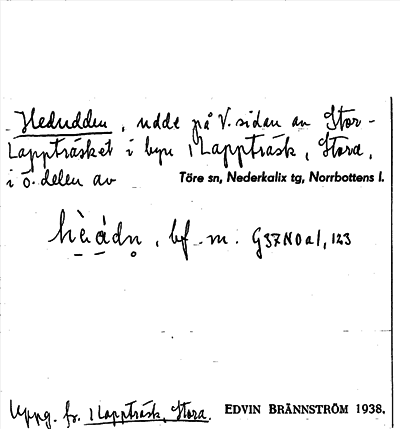 Hedudden, udde på V. sidan av Stor-
Lappträsket i byn 1 Lappträsk, Stora,
i ö. delen av Töre sn, Nederkalix tg, Norrbottens l.
bf. m. G37NOa1, 123
Uppg. fr. 1 Lappträsk, Stora. EDVIN BRÄNNSTRÖM 1938.